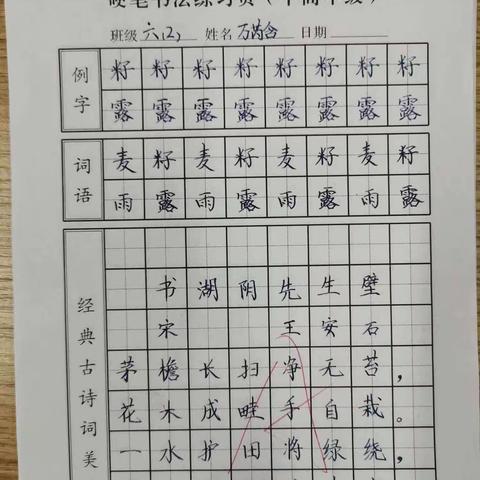 硬笔书法练习页（中高年级）
班级 六(2) 姓名 万芮含 日期
例字
籽 籽 籽 籽 籽 籽 籽 籽
露 露 露 露 露 露 露 露
词语
麦 籽 麦 籽 麦 籽 麦 籽
雨 露 雨 露 雨 露 雨 露
经典古诗词美
书 湖 阴 先 生 壁
宋 王 安 石
茅 檐 长 扫 净 无 苔，
花 木 成 畦 手 自 栽。
一 水 护 田 将 绿 绕，